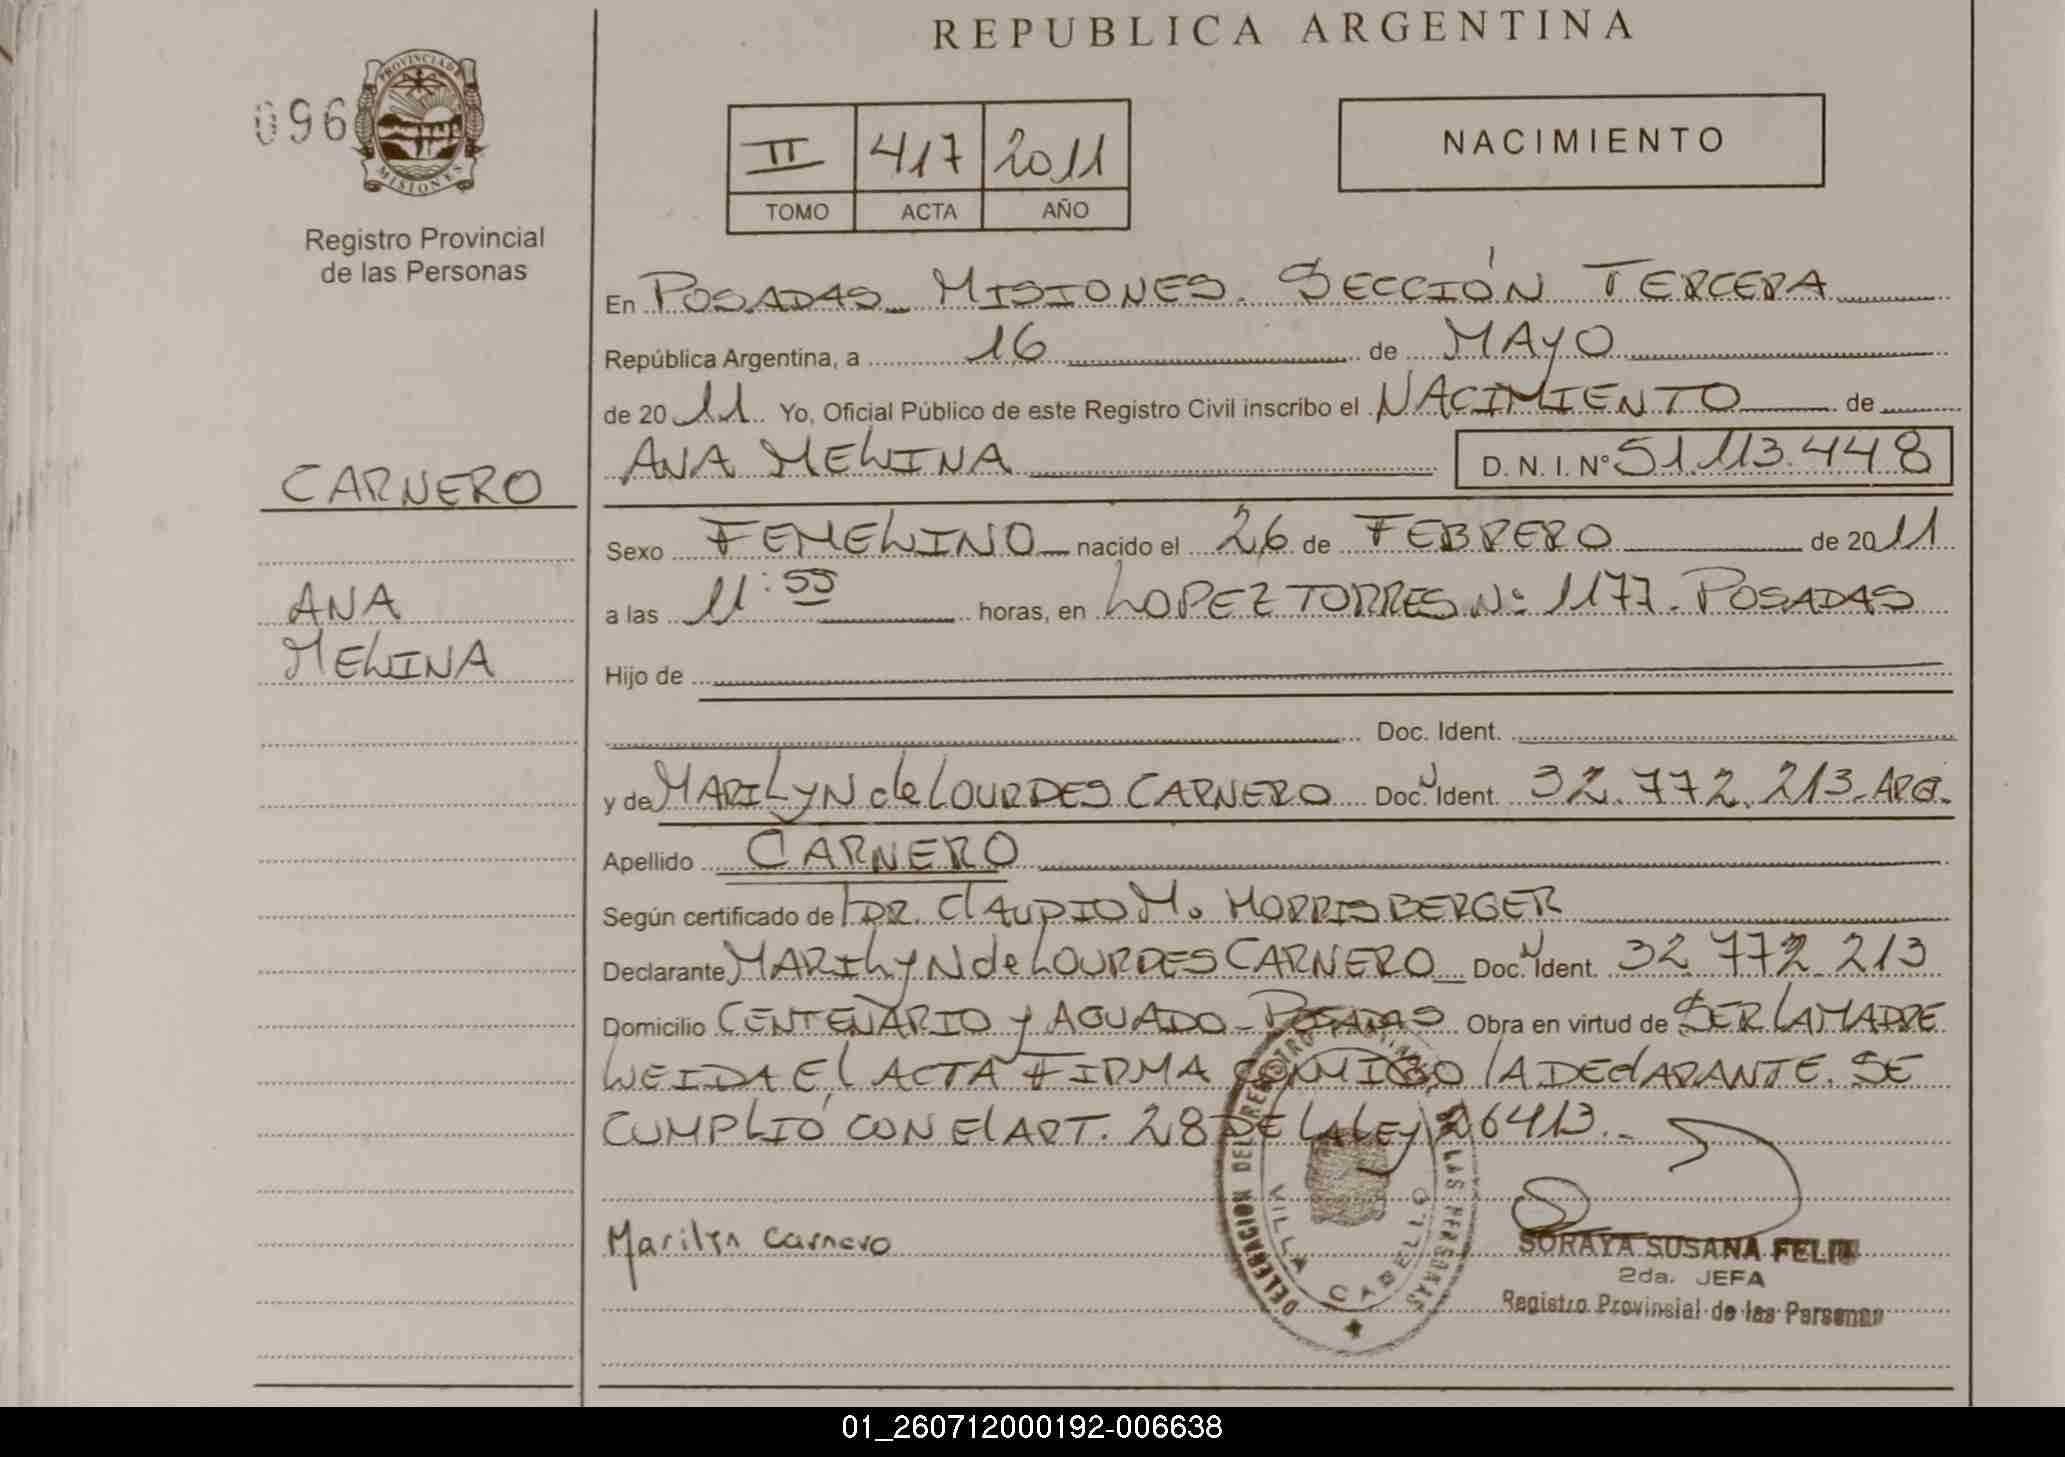 REPUBLICA ARGENTINA
096
PROVINCIA DE MISIONES
Registro Provincial
de las Personas
II 417 2011
TOMO ACTA AÑO
NACIMIENTO
En POSADAS MISIONES. SECCIÓN TERCERA
República Argentina, a 16 de MAYO
de 2011 Yo, Oficial Público de este Registro Civil inscribo el NACIMIENTO de
ANA MELINA D. N. I. N° 51.113.448
CARNERO
ANA
MELINA
Sexo FEMELINO nacido el 26 de FEBRERO de 2011
a las 11:55 horas, en LOPEZ TORRES Nº 1177. POSADAS
Hijo de
Doc. Ident.
y de MARILYN de LOURDES CARNERO Doc. Ident. 32.772.213- ARG.
Apellido CARNERO
Según certificado de DR. CLAUDIO M. MORRISBERGER
Declarante MARILYN de LOURDES CARNERO Doc. Ident. 32 772 213
Domicilio CENTENARIO y AGUADO - POSADAS Obra en virtud de SER LA MADRE
LEIDA El ACTA FIRMA CONMIGO lA DEClARANTE. SE
CUMPLIÓ CON El ART. 28 DE LA LEy 26413.-
DELEGACION DEL REGISTRO PROVINCIAL DE LAS PERSONAS
VILLA CABELLO
Marilyn Carnero
SORAYA SUSANA FELIU
2da. JEFA
Registro Provinsial de las Personas
01_260712000192-006638